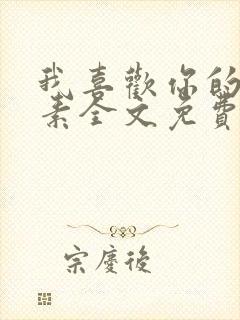 我喜歡你的
素全文免費
宗慶後